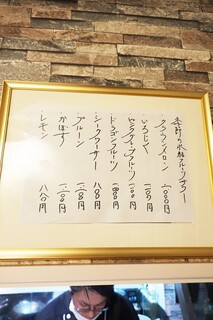 季節の氷結フルーツサワー
・クラウンメロン 二〇〇〇円
・いちじく 一二〇〇円
・ピンクグレープフルーツ 一一〇〇円
・ドラゴンフルーツ 一四〇〇円
・シークワーサー 八八〇円
・プルーン 一二〇〇円
・かぼす 一一〇〇円
・レモン 八八〇円